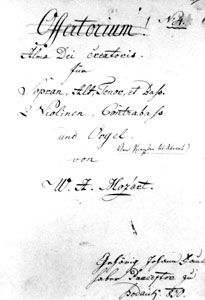 Offertorium! No 4.
Alma Dei creatoris.
für
Sopran, Alt, Tenor, et Bass.
2 Violinen, Contrabass
und Orgel.
von
W. A. Mozart.
Johann
Praeceptor zu